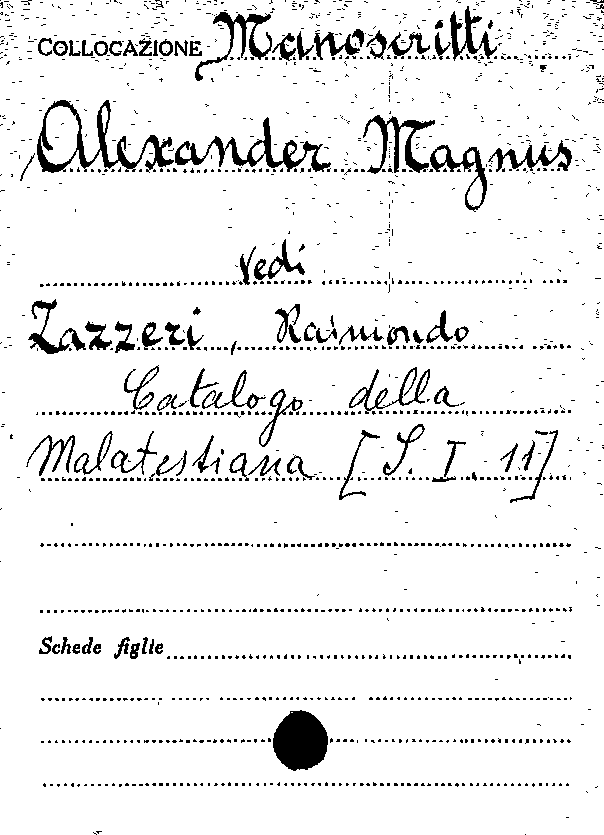 COLLOCAZIONE Manoscritti
Alexander Magnus
vedi
Zazzeri, Raimondo
Catalogo della
Malatestiana [S. I. 11]
Schede figlie